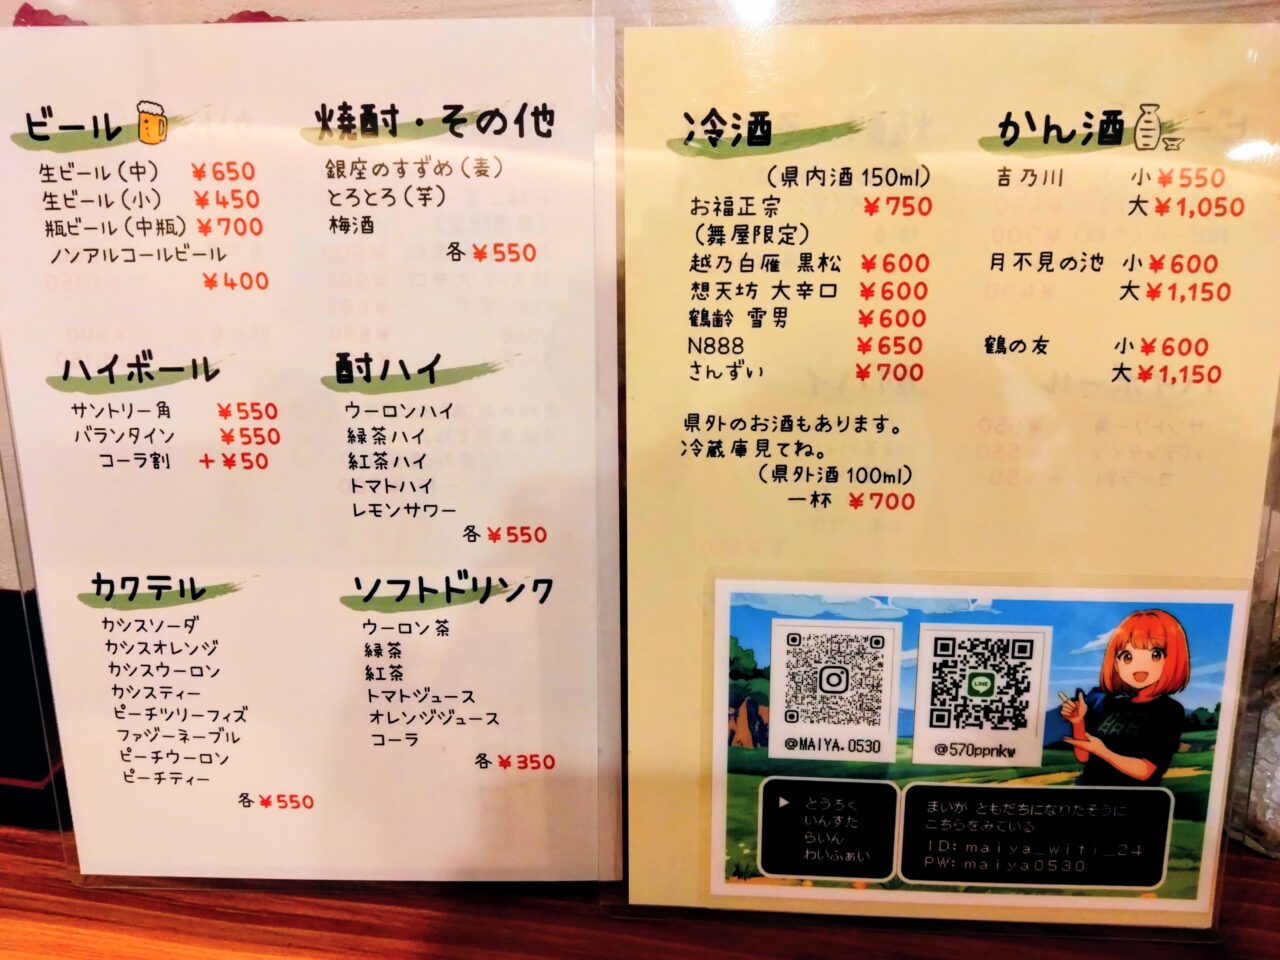 ビール
生ビール(中) ¥650
生ビール(小) ¥450
瓶ビール(中瓶) ¥700
ノンアルコールビール
¥400
焼酎・その他
銀座のすずめ(麦)
とろとろ(芋)
梅酒
各¥550
ハイボール
サントリー角 ¥550
バランタイン ¥550
コーラ割 +¥50
酎ハイ
ウーロンハイ
緑茶ハイ
紅茶ハイ
トマトハイ
レモンサワー
各¥550
カクテル
カシスソーダ
カシスオレンジ
カシスウーロン
カシスティー
ピーチツリーフィズ
ファジーネーブル
ピーチウーロン
ピーチティー
各¥550
ソフトドリンク
ウーロン茶
緑茶
紅茶
トマトジュース
オレンジジュース
コーラ
各¥350
冷酒
(県内酒150ml)
お福正宗 ¥750
(舞屋限定)
越乃白雁 黒松 ¥600
想天坊 大辛口 ¥600
鶴齢 雪男 ¥600
N888 ¥650
さんずい ¥700
県外のお酒もあります。
冷蔵庫見てね。
(県外酒100ml)
一杯 ¥700
かん酒
吉乃川 小¥550
大¥1,050
月不見の池 小¥600
大¥1,150
鶴の友 小¥600
大¥1,150
@MAIYA.0530
LINE
@570ppnkw
▶ とうろく
いんすた
らいん
わいふぁい
まいが ともだちになりたそうに
こちらをみている
ID: maiya_wifi_24
PW: maiya0530